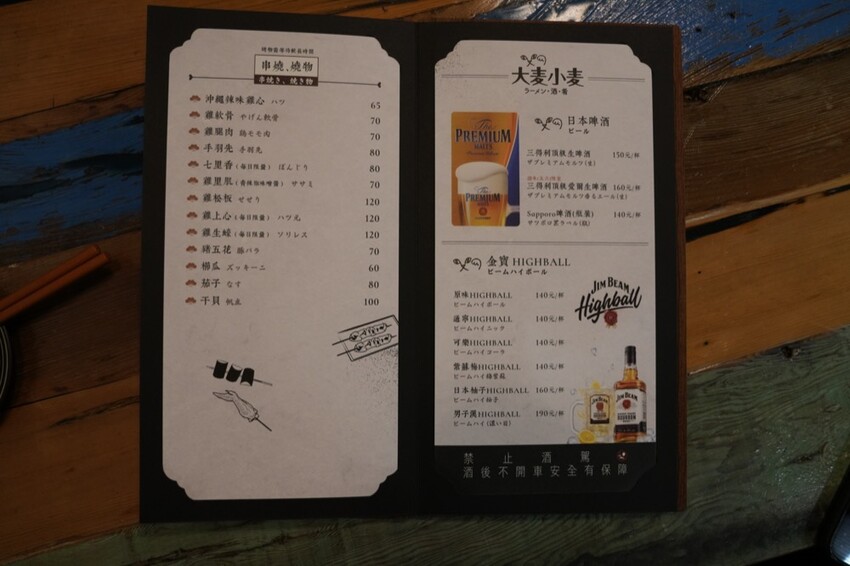 串燒、燒物
串焼き、焼き物
沖繩辣味雞心 ハツ 65
雞軟骨 やげん軟骨 70
雞腿肉 鶏モモ肉 70
手羽先 手羽先 80
七里香(每日限量) ぼんじり 80
雞里肌(青辣椒味噌醬) ササミ 70
雞松板 せせり 120
雞上心(每日限量) ハツ元 120
雞生蠔(每日限量) ソリレス 120
豬五花 豚バラ 70
櫛瓜 ズッキーニ 60
茄子 なす 80
干貝 帆立 100
大麦小麦
ラーメン・酒・肴
The PREMIUM MALT'S
PREMIUM
日本啤酒
ビール
三得利頂級生啤酒 150元/杯
ザプレミアムモルツ(生)
三得利頂級愛爾生啤酒 160元/杯
ザプレミアムモルツ香るエール(生)
Sapporo啤酒(瓶裝) 140元/杯
サツポロ黒ラベル(瓶)
金賓HIGHBALL
ビームハイボール
JIM BEAM
Highball
原味HIGHBALL 140元/杯
ビームハイボール
通寧HIGHBALL 140元/杯
ビームハイニック
可樂HIGHBALL 140元/杯
ビームハイコーラ
紫蘇梅HIGHBALL 140元/杯
ビームハイ梅紫苑
日本柚子HIGHBALL 160元/杯
ビームハイ柚子
男子漢HIGHBALL 190元/杯
ビームハイ(濃い目)
JIM BEAM
JIM BEAM
BOURBON
禁止酒駕
酒後不開車安全有保障